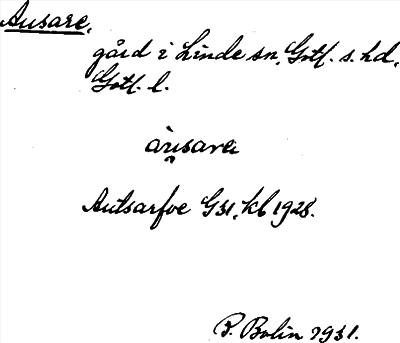 Ausare,
gård i Linde sn, Gotl. s. hd,
Gotl. l.
àu̯sarai
Autsarfve GSI, kb 1928.
P. Bolin 1931.